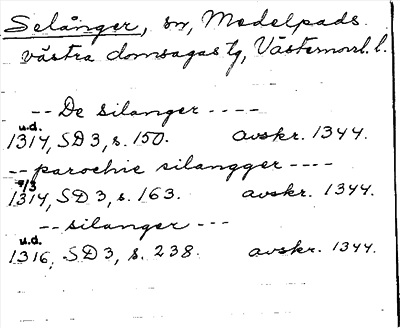 Selånger, sn, Medelpads
västra domsagas tg, Västernorrl. l.
-- De silanger ----
u.d.
1314, SD 3, s. 150. avskr. 1344.
-- parochie silangger ----
9/3
1314, SD 3, s. 163. avskr. 1344.
-- silanger ---
u.d.
1316, SD 3, s. 238. avskr. 1344.